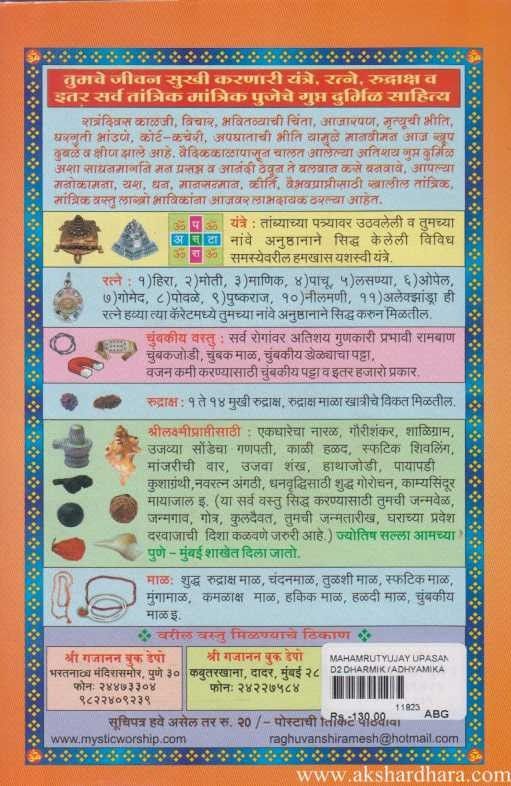 तुमचे जीवन सुखी करणारी यंत्रे, रत्ने, रुद्राक्ष व
इतर सर्व तांत्रिक मांत्रिक पुजेचे गुप्त दुर्मिळ साहित्य
रात्रंदिवस काळजी, विचार, भवितव्याची चिंता, आजारपण, मृत्यूची भीति,
घरगुती भांडणे, कोर्ट-कचेरी, अपघाताची भीति यामुळे मानवीमन आज खुप
दुबळे व क्षीण झाले आहे. वैदिककाळापासून चालत आलेल्या अतिशय गुप्त दुर्मिळ
अशा साधनमार्गाने मन प्रसन्न व आनंदी ठेवून ते बलवान कसे बनवावे. आपल्या
मनोकामना, यश, धन, मानसन्मान, कीर्ति, वैभवप्राप्तीसाठी खालील तांत्रिक,
मांत्रिक वस्तु लाखो भाविकांना आजवर लाभदायक ठरल्या आहेत.
यंत्रे : तांब्याच्या पत्र्यावर उठवलेली व तुमच्या
नांवे अनुष्ठानाने सिद्ध केलेली विविध
समस्येवरील हमखास यशस्वी यंत्रे.
रत्ने : १)हिरा, २)मोती, ३)माणिक, ४)पाचू, ५)लसण्या, ६)ओपेल,
७)गोमेद, ८)पोवळे, ९)पुष्कराज, १०)नीलमणी, ११)अलेक्झांड्रा ही
रत्ने हव्या त्या कॅरेटमध्ये तुमच्या नांवे अनुष्ठानाने सिद्ध करुन मिळतील.
चुंबकीय वस्तु : सर्व रोगांवर अतिशय गुणकारी प्रभावी रामबाण
चुंबकजोडी, चुंबक माळ, चुंबकीय डोळ्याचा पट्टा,
वजन कमी करण्यासाठी चुंबकीय पट्टा व इतर हजारो प्रकार.
रुद्राक्ष : १ ते १४ मुखी रुद्राक्ष, रुद्राक्ष माळा खात्रीचे विकत मिळतील.
श्रीलक्ष्मीप्राप्तीसाठी : एकधारेचा नारळ, गौरीशंकर, शाळिग्राम,
उजव्या सोंडेचा गणपती, काळी हळद, स्फटिक शिवलिंग,
मांजरीची वार, उजवा शंख, हाथाजोडी, पायापडी
कुशाग्रंथी, नवरत्न अंगठी, धनवृद्धिसाठी शुद्ध गोरोचन, काम्यसिंदूर
मायाजाल इ. (या सर्व वस्तु सिद्ध करण्यासाठी तुमची जन्मवेळ,
जन्मगाव, गोत्र, कुलदैवत, तुमची जन्मतारीख, घराच्या प्रवेश
दरवाजाची दिशा कळवणे जरुरी आहे.) ज्योतिष सल्ला आमच्या
पुणे – मुंबई शाखेत दिला जातो.
माळ: शुद्ध रुद्राक्ष माळ, चंदनमाळ, तुळशी माळ, स्फटिक माळ,
मुंगामाळ, कमळाक्ष माळ, हकिक माळ, हळदी माळ, चुंबकीय
माळ इ.
वरील वस्तु मिळण्याचे ठिकाण
श्री गजानन बुक डेपो
भरतनाट्य मंदिरासमोर, पुणे ३०
फोनः २४४७३३०४
९८२२४०९२३९
श्री गजानन बुक डेपो
कबुतरखाना, दादर, मुंबई २८
फोनः २४२२७५८४
MAHAMRUTYUJAY UPASAN
D2 DHARMIK /ADHYAMIKA
11823
Rs. 130.00 ABG
सूचिपत्र हवे असेल तर रु. २०/– पोस्टाची तिकिटे पाठवावी
www.mysticworship.com raghuvanshiramesh@hotmail.com
www.akshardhara.com